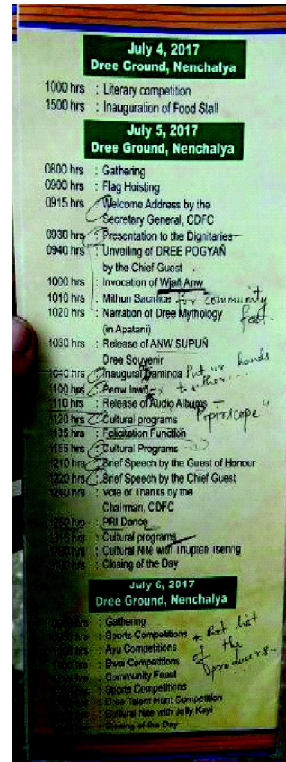 July 4, 2017
Dree Ground, Nenchalya
1000 hrs : Literary competition
1500 hrs : Inauguration of Food Stall
July 5, 2017
Dree Ground, Nenchalya
0800 hrs : Gathering
0900 hrs : Flag Hoisting
0915 hrs : Welcome Address by the
Secretary General, CDFC
0930 hrs : Presentation to the Dignitaries
0940 hrs : Unveiling of DREE POGYAÑ
by the Chief Guest
1000 hrs : Invocation of Wjañ Anw
1010 hrs : Mithun Sacrifice for community
1020 hrs : Narration of Dree Mythology
(in Apatani)
1030 hrs : Release of ANW SUPUÑ
Dree Souvenir
hrs : Inaugural Daminda Put ur hands
1100 hrs : together...
1110 hrs : Release of Audio Albums
1120 hrs : Cultural programs
1135 hrs : Felicitation Function
1155 hrs : Cultural Programs
1210 hrs : Brief Speech by the Guest of Honour
1220 hrs : Brief Speech by the Chief Guest
hrs : Vote of Thanks by the
Chairman, CDFC
hrs : PRI Dance
hrs : Cultural programs
hrs : Cultural Nite with Thupten Tsering
hrs : Closing of the Day
July 6, 2017
Dree Ground, Nenchalya
: Gathering
: Sports Competitions
: Ayu Competitions
: Competitions
: Community Feast
: Sports Competitions
: Dree Talent Hunt Competition
: Cultural Nite with Jelly Kayi
: Closing of the Day